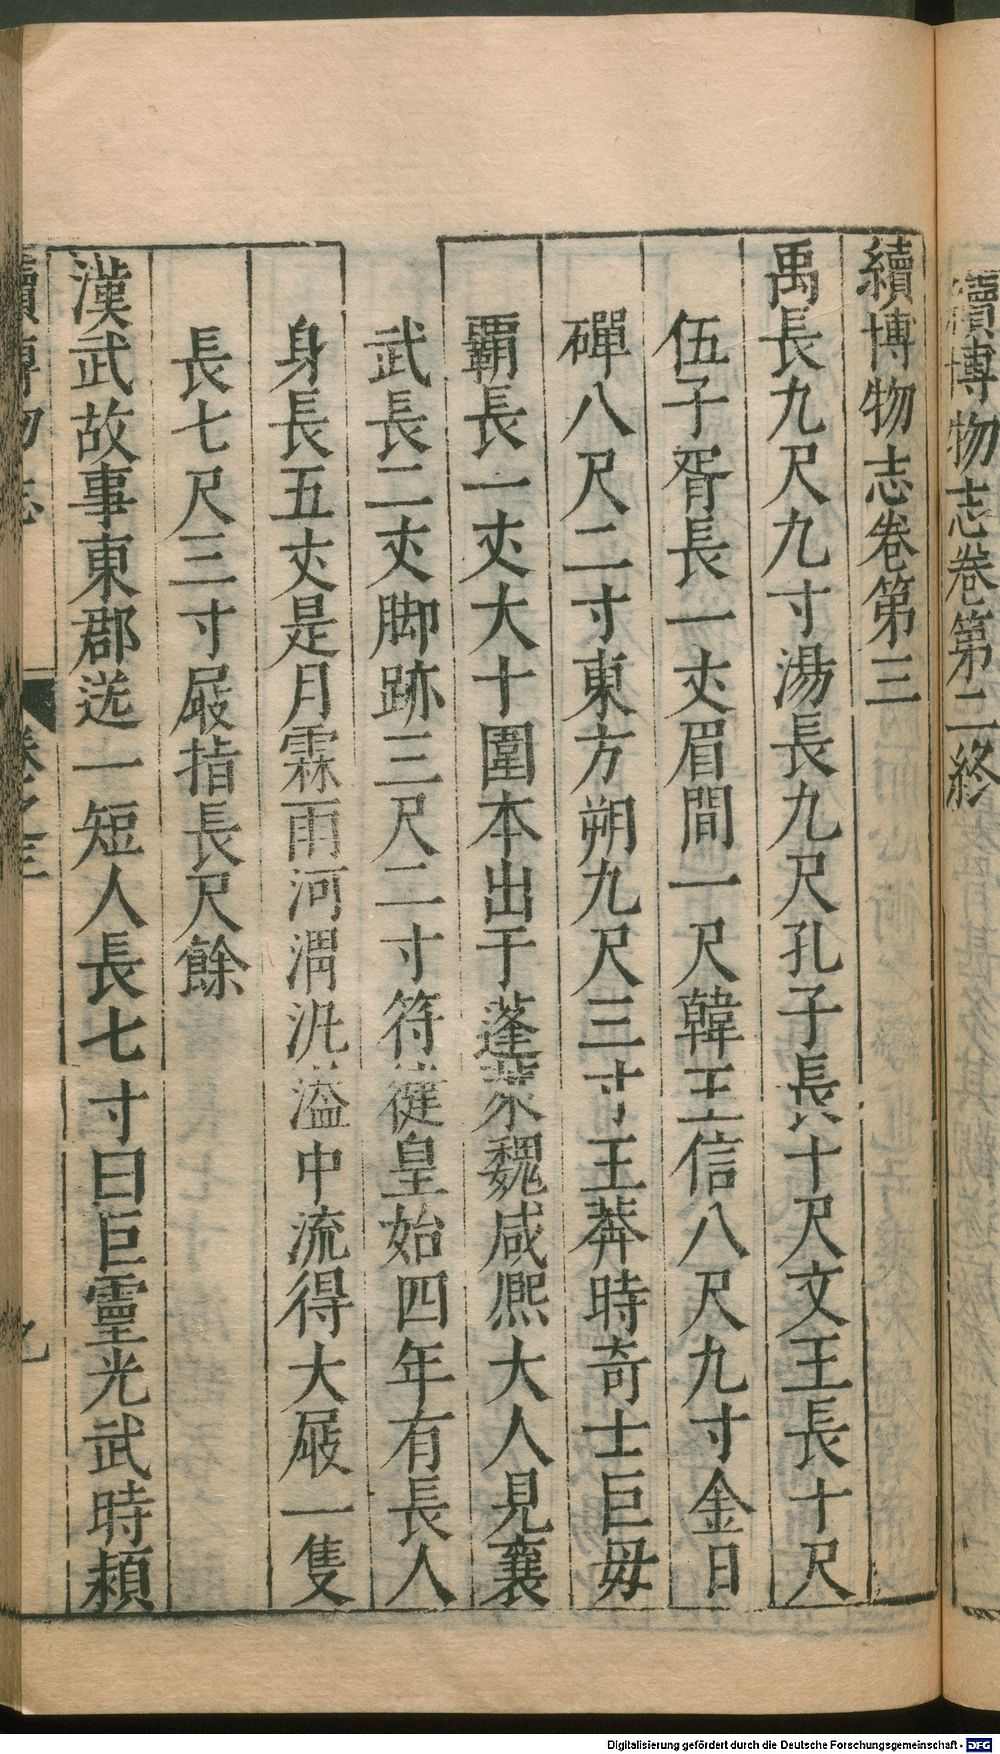 續博物志卷第二終
續博物志卷第三
禹長九尺九寸湯長九尺孔子長十尺文王長十尺
伍子胥長一𠀋眉間一尺韓王信八尺九寸金日
磾八尺二寸東方朔九尺三寸王莽時奇士巨毋
霸長一𠀋大十圍本出于蓬萊魏咸熈大人見襄
武長二𠀋脚跡三尺二寸符健皇始四年有長人
身長五𠀋是月霖雨河渭汎溢中流得大屐一隻
長七尺三寸屐指長尺餘
漢武故事東郡送一短人長七寸曰巨靈光武時頴
續博物志
卷之三
Digitalisierung gefördert durch die Deutsche Forschungsgemeinschaft - DFG